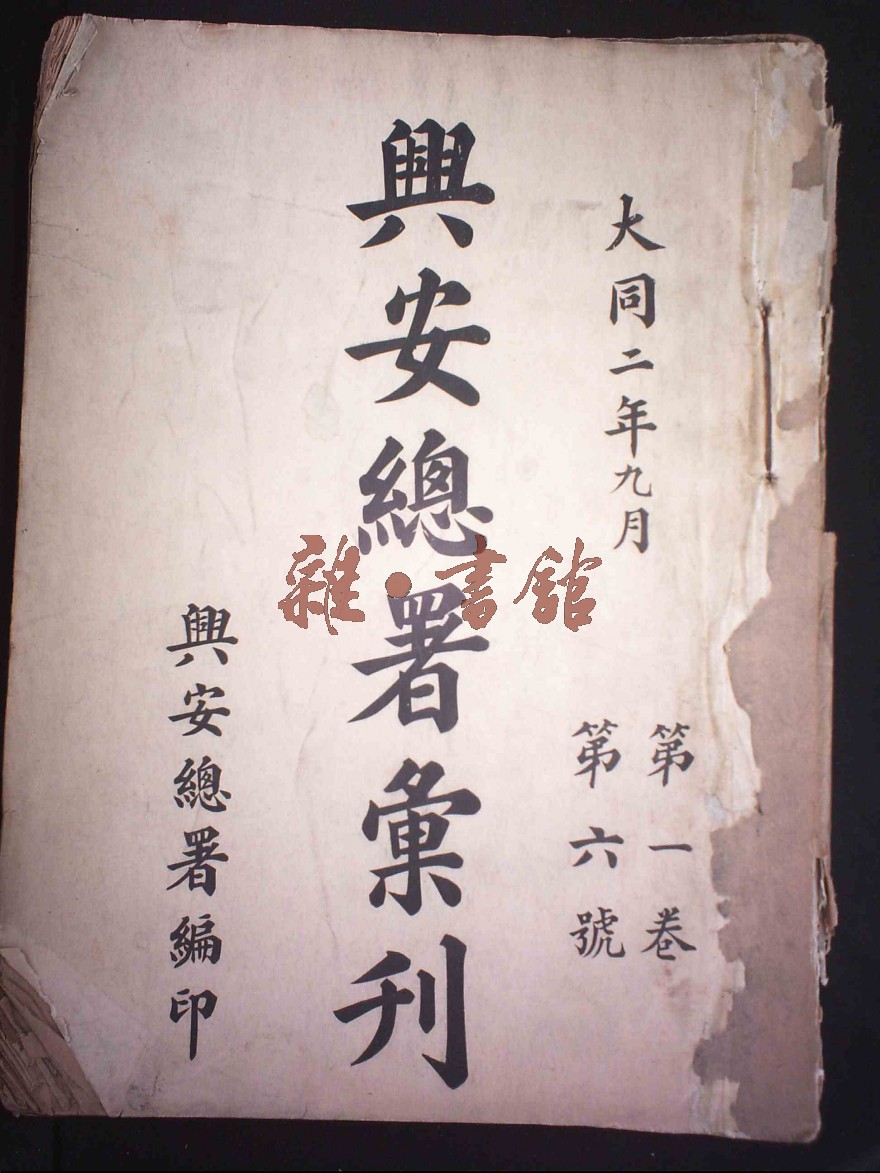 大同二年九月
第一卷
第六號
興安總署彙刊
興安總署編印
雜·書館